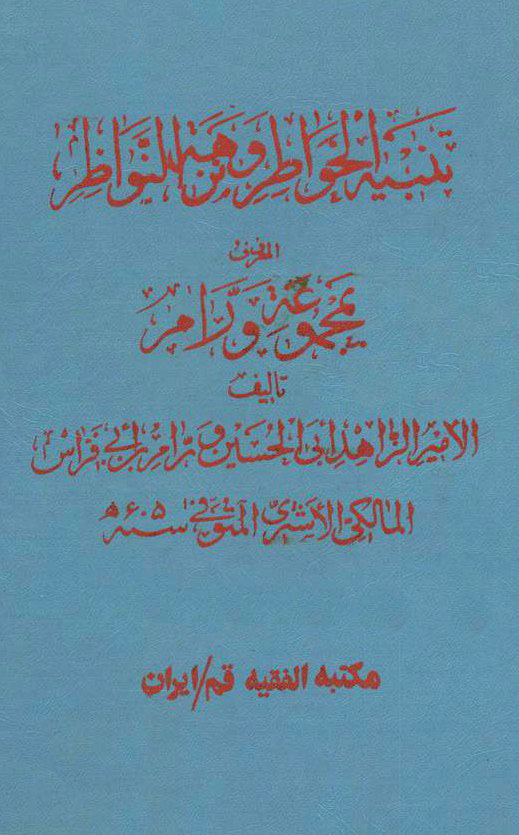 تنبيه الخواطر ونزهة النواظر
المعروف
بمجموعة ورّام
تأليف
الأمير الزاهد أبي الحسين ورام بن أبي فراس
المالكي الأشتري المتوفى سنة ٦٠٥ ه
مكتبه الفقيه قم/ايران